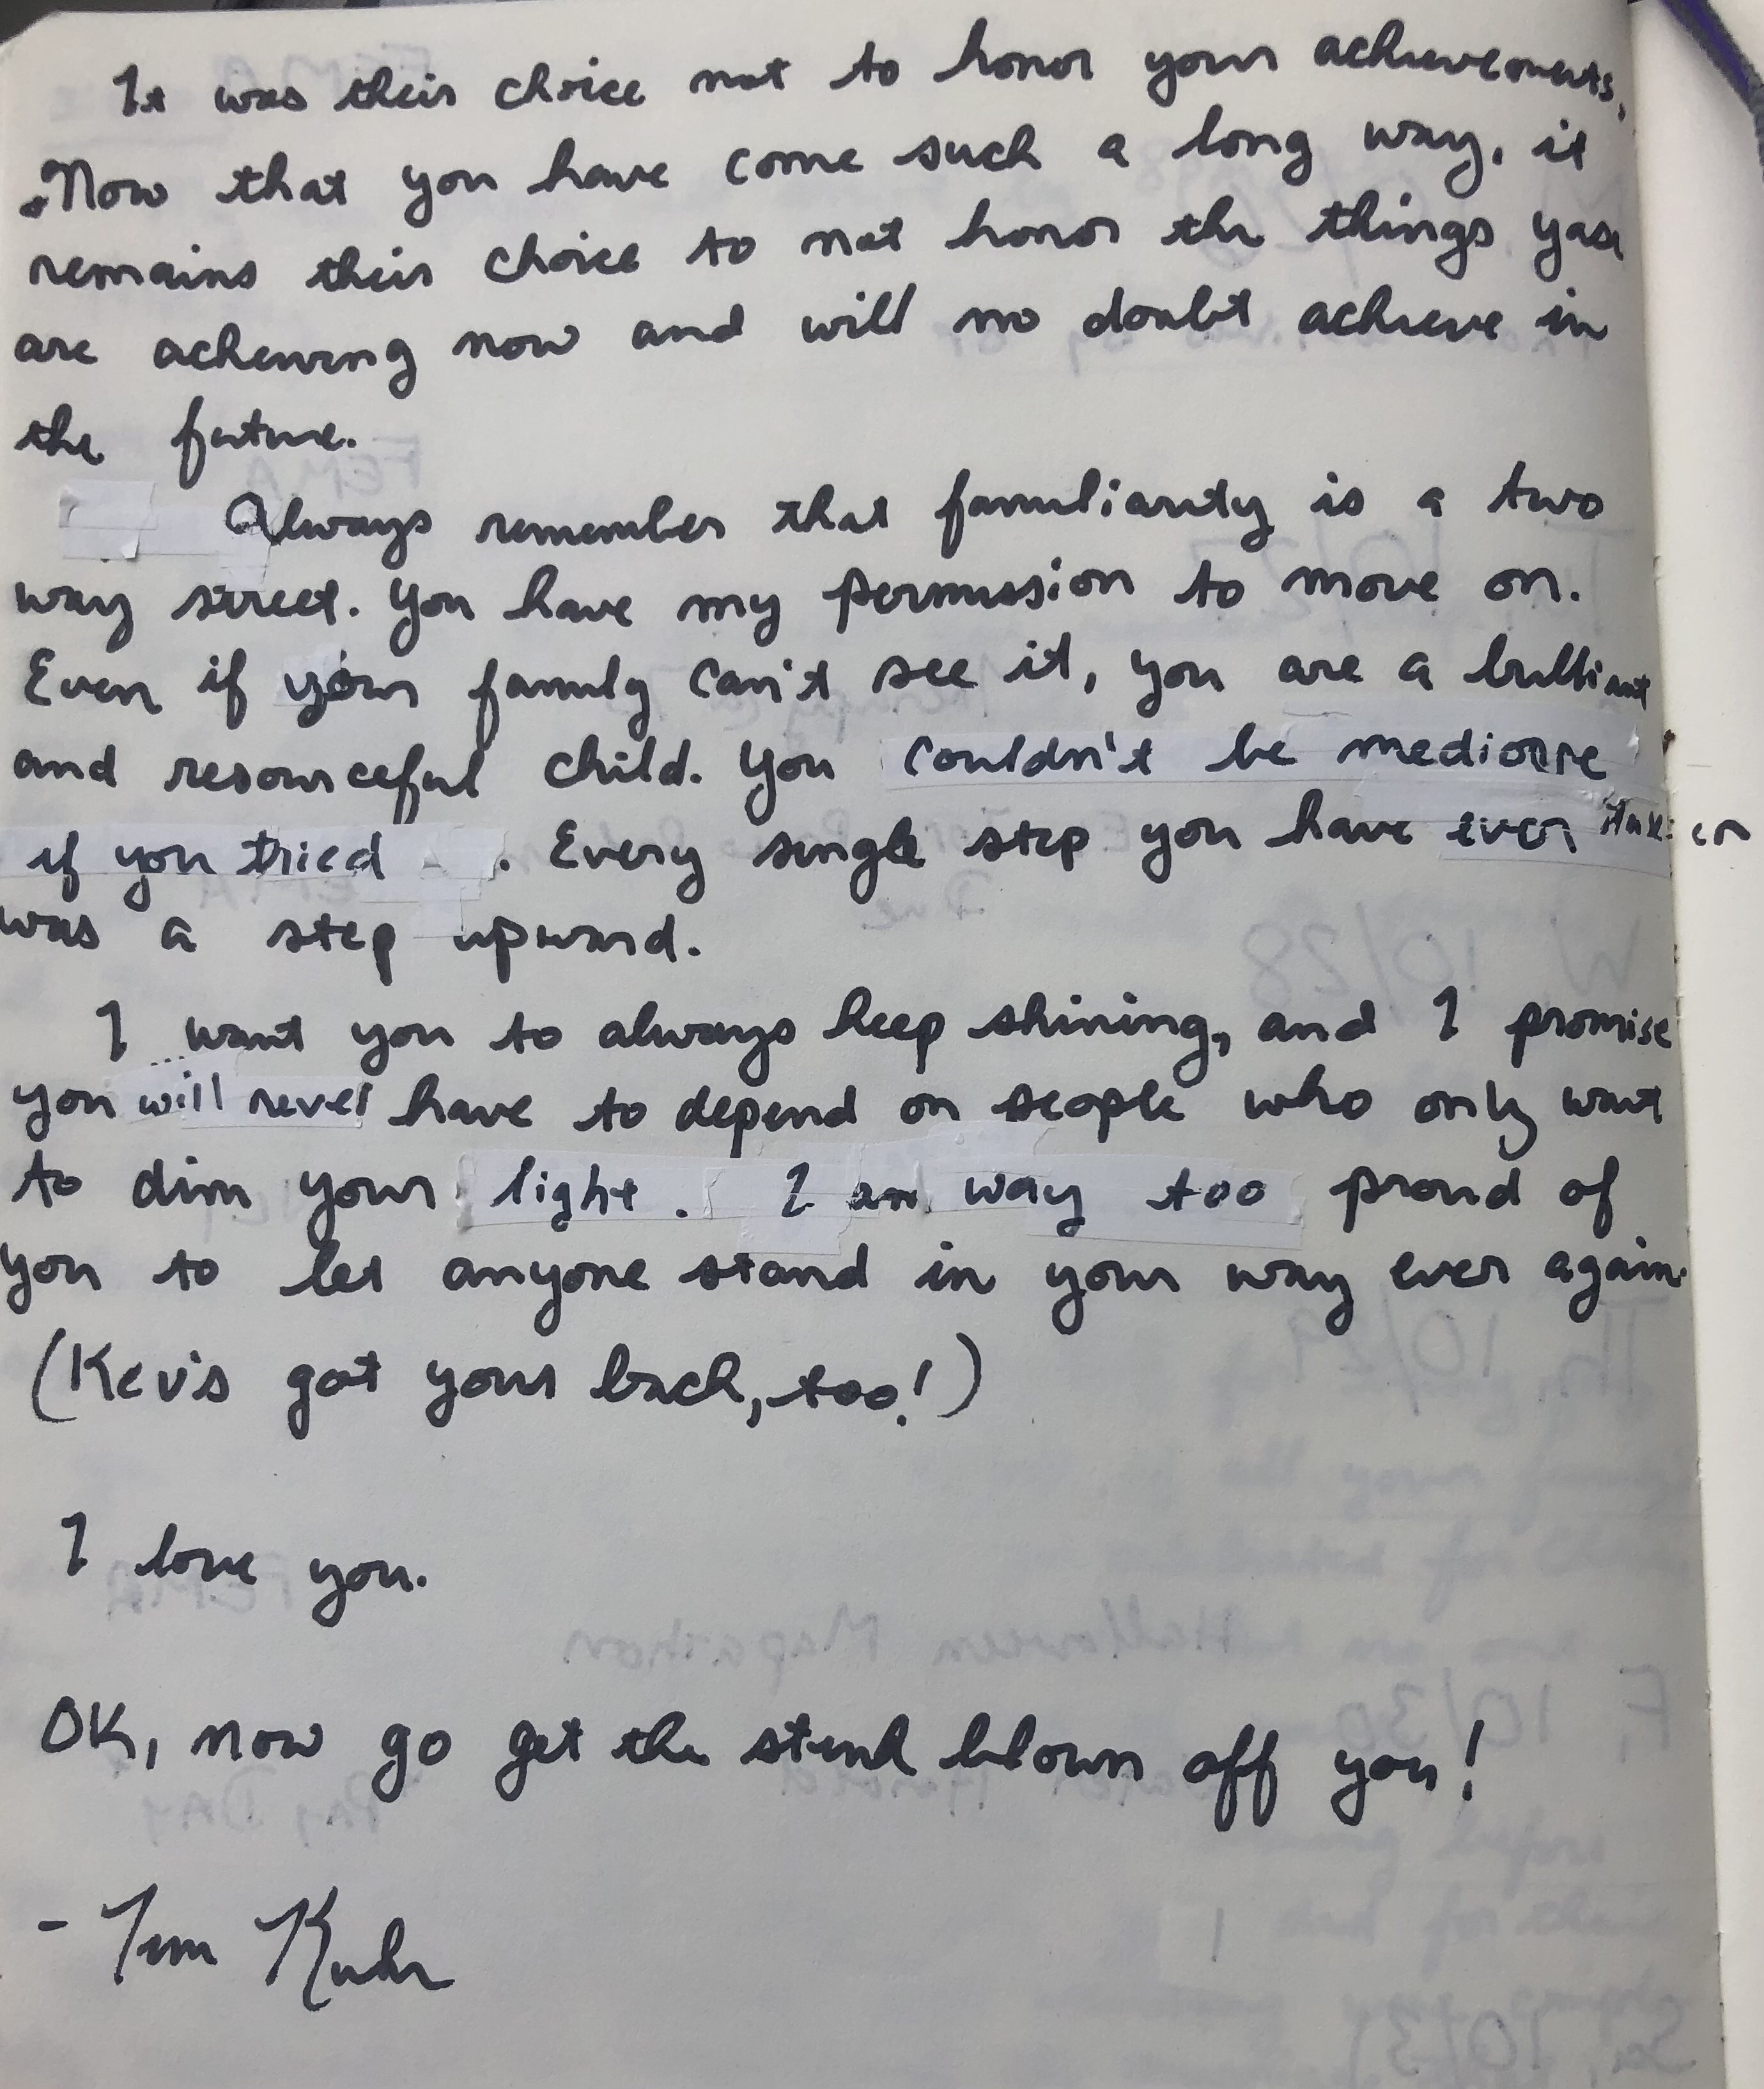 It was their choice not to honor your achievements.
Now that you have come such a long way, it
remains their choice to not honor the things you
are acheiving now and will no doubt achieve in
the future.
Always remember that familiarity is a two
way street. You have my permission to move on.
Even if your family can't see it, you are a brilliant
and resourceful child. You couldn't be mediocre
if you tried . Every single step you have ever taken
was a step upward.
I want you to always keep shining, and I promise
you will never have to depend on people who only want
to dim your light. I am way too proud of
you to let anyone stand in your way ever again.
(Kev's got your back, too!)
I love you.
OK, now go get the stink blown off you!
- Tim Kuhr
FEMA
FEMA
W, 10/28
Th, 10/29
FEMA
Halloween Mapathon
F, 10/30
Pay Day